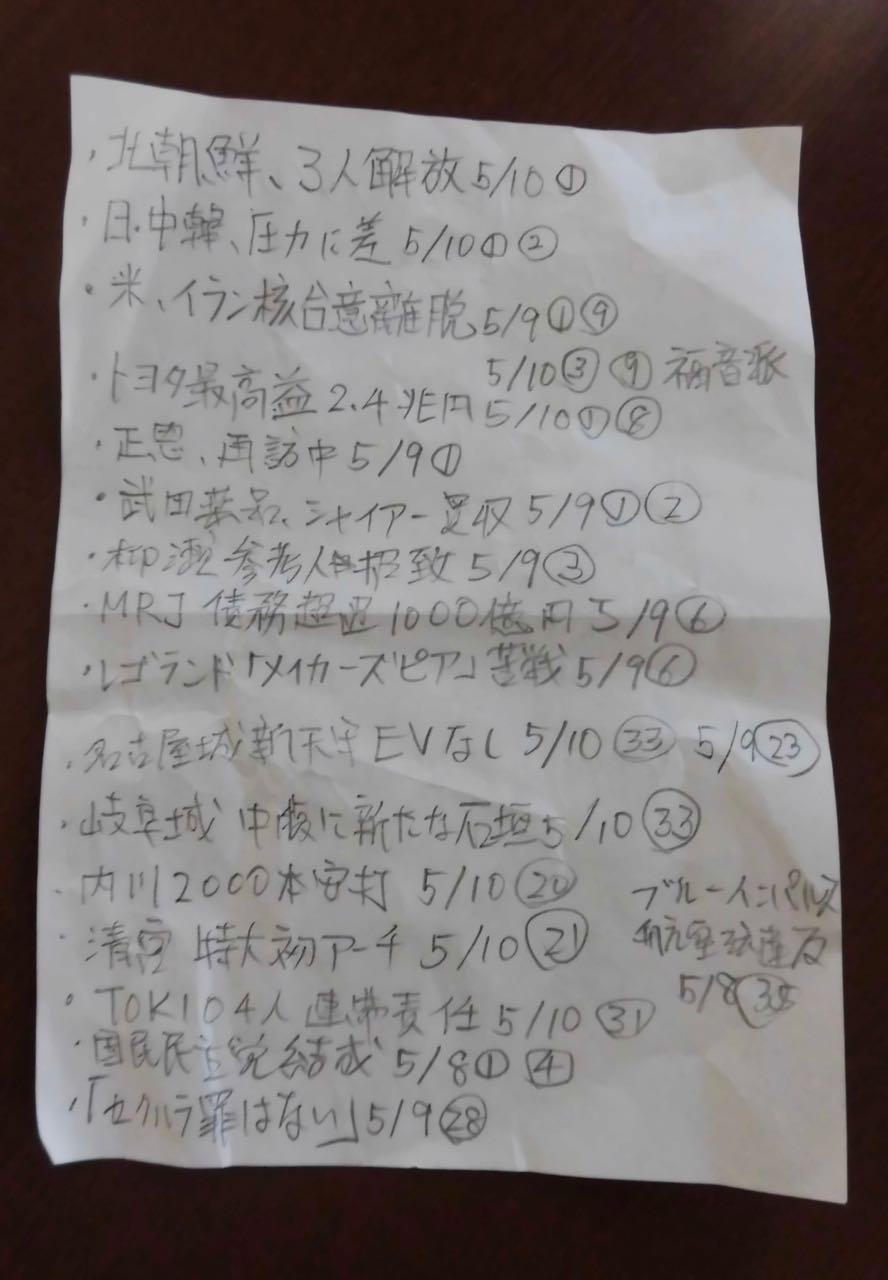 ・北朝鮮、3人解放 5/10①
・日・中韓、圧力に差 5/10①②
・米、イラン核合意離脱 5/9①⑨
5/10③⑨福音派
・トヨタ最高益2.4兆円 5/10①⑧
・正恩、再訪中 5/9①
・武田薬品、シャイアー買収 5/9①②
・柳瀬参考人招致 5/9③
・MRJ債務超過1000億円 5/9⑥
・レゴランド「メイカーズピア」苦戦 5/9⑥
・名古屋城新天守EVなし 5/10㉝ 5/9㉓
・岐阜城 中腹に新たな石垣 5/10㉝
・内川2000本安打 5/10⑳
・清宮 特大初アーチ 5/10㉑
・TOKIO4人 連帯責任 5/10㉛
・国民民主党結成 5/8①④
・「セクハラ罪はない」5/9㉘
ブルーインパルス
航空法違反
5/8